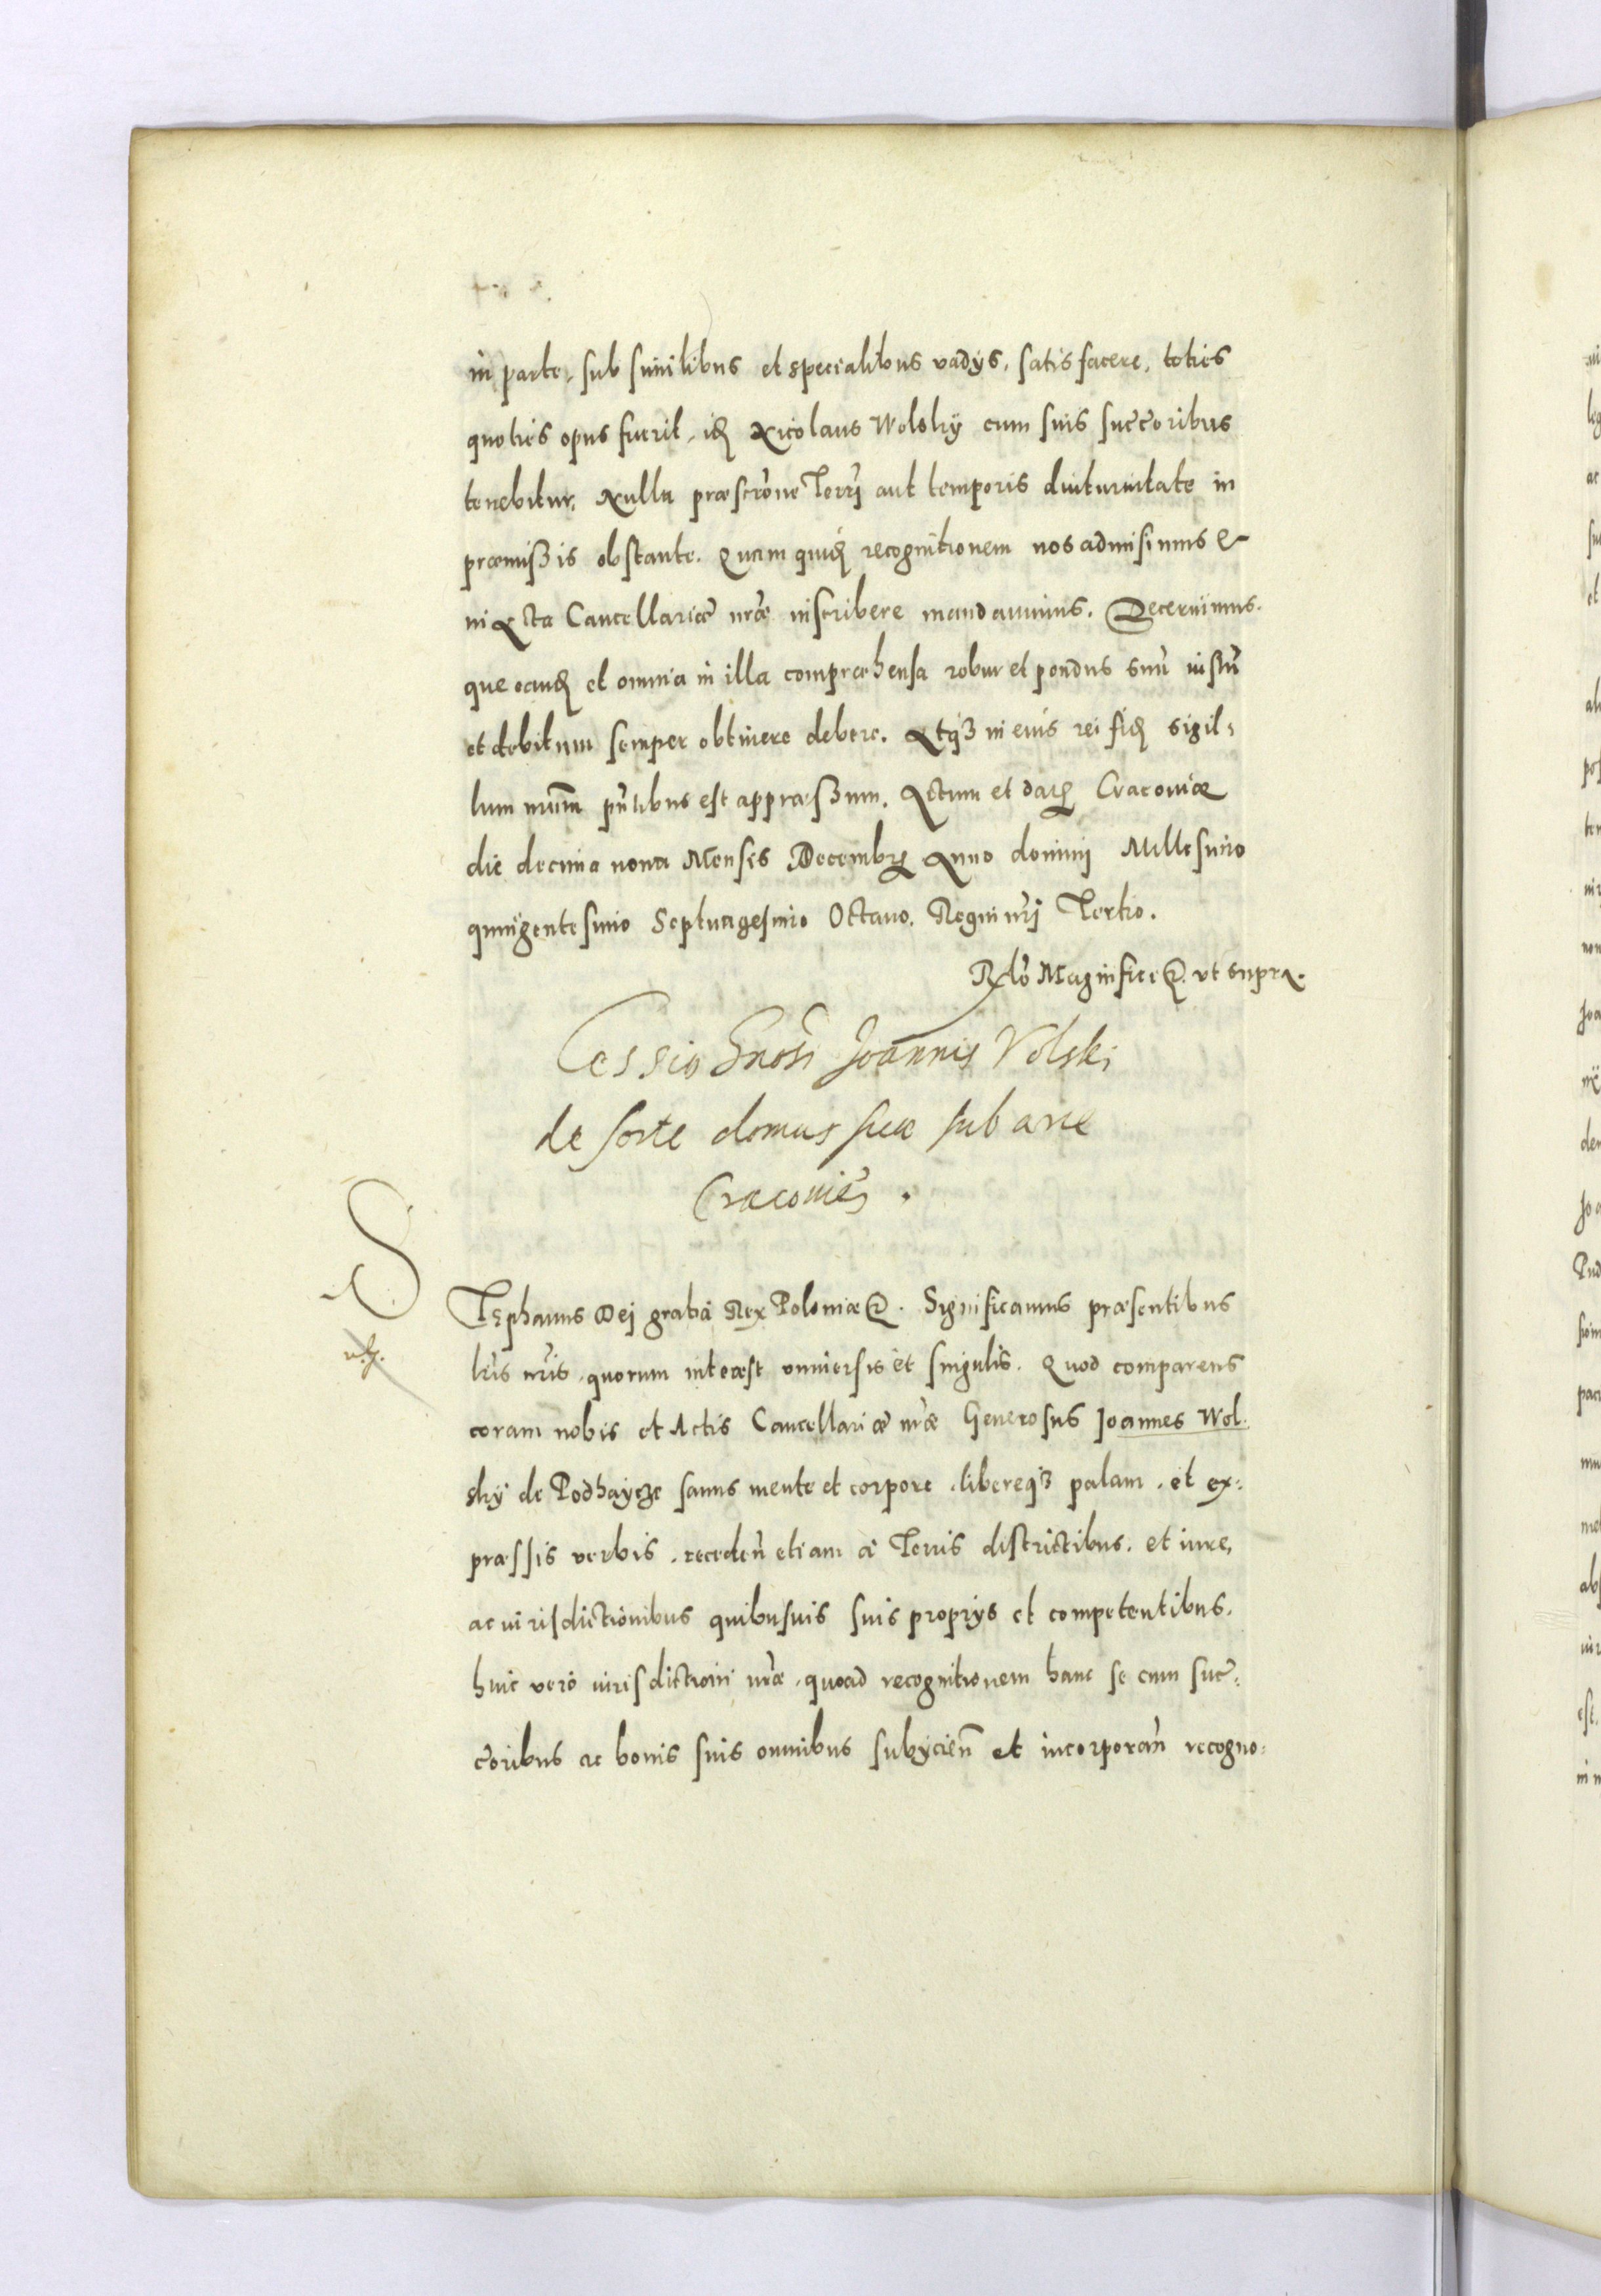 in parte, sub similibus et specialibus vadÿs, satisfacere, toties
quoties opus fuerit, idẽ Nicolaus Wolsky cum suis succ̃oribus
tenebitur. Nulla præscrõne Terrj̃ aut temporis diuturnitate in
præmissis obstante. Quam quidẽ recognitionem nos admisimus et
in Acta Cancellariæ nrẽ inscribere mandauimus. Decernimus-
que eandẽ et omnia in illa compræhensa robur et pondus suũ iustũ
et debitum semper obtinere debere. Atqȝ in eius rei fidẽ sigil-
lum nrũm pñtibus est appræssum. Actum et datũ Cracouiæ
die decima nona Mensis Decembrꝭ Anno dominj Millesimo
quingentesimo Septuagesimo Octauo. Regni nrj̃ Tertio.
Rlõ Magnifici etc. vt supra.
Cessio Gnosi Joannis Volski
de sorte domus suæ sub arce
Cracouieñ.
STephanus Dej gratia Rex Poloniæ etc. Significamus præsentibus
lrĩs nrĩs, quorum interest vniuersis et singulis. Quod comparens
coram nobis et Actis Cancellariæ nrã Generosus Joannes Wol-
sky de Podhaycze sanus mente et corpore, libereqȝ palam, et ex-
præssis verbis, recedeñ etiam a Terris districtibus, et iure,
ac iurisdictionibus quibusuis suis proprÿs et competentibus,
huic vero iurisdictioni nrẽ, quoad recognitionem hanc se cum succ̃-
oribus ac bonis suis omnibus subÿcieñ et incorporañ recogno-